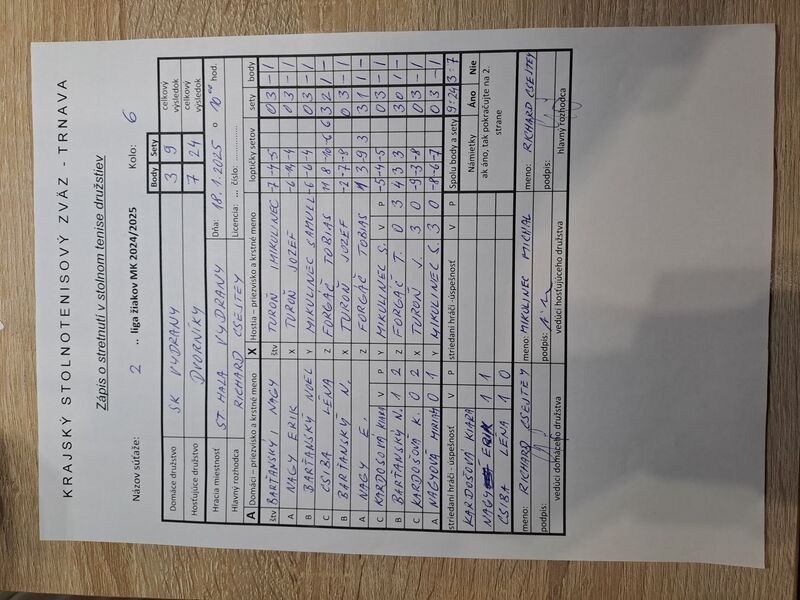 KRAJSKÝ STOLNOTENISOVÝ ZVÄZ - TRNAVA
Zápis o stretnutí v stolnom tenise družstiev
Názov súťaže: 2 .. liga žiakov MK 2024/2025 Kolo: 6
Body Sety
Domáce družstvo SK VYDRANY 3 9 celkový výsledok
Hosťujúce družstvo DVORNÍKY 7 24 celkový výsledok
Hracia miestnosť ST HALA VYDRANY Dňa: 18.1.2025 o 10 00 hod.
Hlavný rozhodca RICHARD CSEJTEY Licencia: ... číslo: ...............
A Domáci – priezvisko a krstné meno X Hostia – priezvisko a krstné meno loptičky setov sety body
štv BARTANSKÝ, NAGY štv TUROŇ, MIKULINEC -7 -4 -5 0 3 - 1
A NAGY ERIK X TUROŇ JOZEF -6 -14 -4 0 3 - 1
B BARTANSKÝ NOEL Y MIKULINEC SAMUEL -6 -6 -4 0 3 - 1
C CSIBA LÉNA Z FORGÁČ TOBIAS 11 8 -10 -6 6 3 2 1 -
B BARTANSKÝ N. X TUROŇ JOZEF -2 -7 -8 0 3 - 1
A NAGY E. Z FORGÁČ TOBIAS 3 9 3 3 1 1 -
V P V P
C KARDOŠOVÁ KIARA Y MIKULINEC S. -5 -4 -5 0 3 - 1
B BARTANSKÝ N. 1 2 Z FORGÁČ T. 0 3 4 3 3 3 0 1 -
C KARDOŠOVÁ K. 0 2 X TUROŇ J. 3 0 -9 -3 -8 0 3 - 1
A NAGYOVÁ MIRIAM 0 1 Y MIKULINEC S. 3 0 -8 -6 -7 0 3 - 1
striedaní hráči - úspešnosť V P striedaní hráči - úspešnosť V P Spolu body a sety 9:24 3:7
KARDOŠOVÁ KIARA
NAGY ERIK 1 1
CSIBA LENA 1 0
Námietky Áno Nie
ak áno, tak pokračujte na 2. strane
meno: RICHARD CSEJTEY meno: MIKULINEC MICHAL meno: RICHARD CSEJTEY
podpis: podpis: podpis:
vedúci domáceho družstva vedúci hosťujúceho družstva hlavný rozhodca